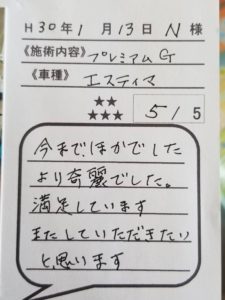 H30年1月13日N様
《施術内容》プレミアムG
《車種》エスティマ
★★
★★★
5/5
今までほかでした
より奇麗でした。
満足しています
またしていただきたい
と思います